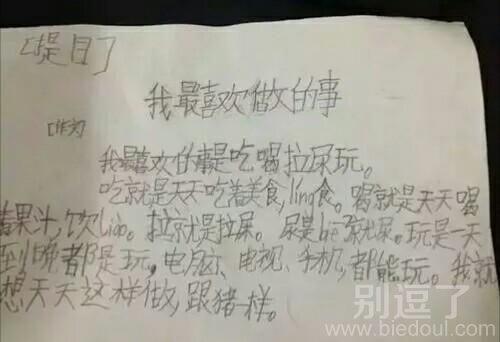 [提目]
我最喜欢做的事
[作文]
我最喜欢的事是吃喝拉尿玩。
吃就是天天吃着美食,ling食。喝就是天天喝
着果汁,饮liao。拉就是拉屎。尿是 就尿。玩是一天
到晚都是玩,电脑、电视、手机,都能玩。我就
想天天这样做,跟猪样。
别逗了
www.biedoul.com